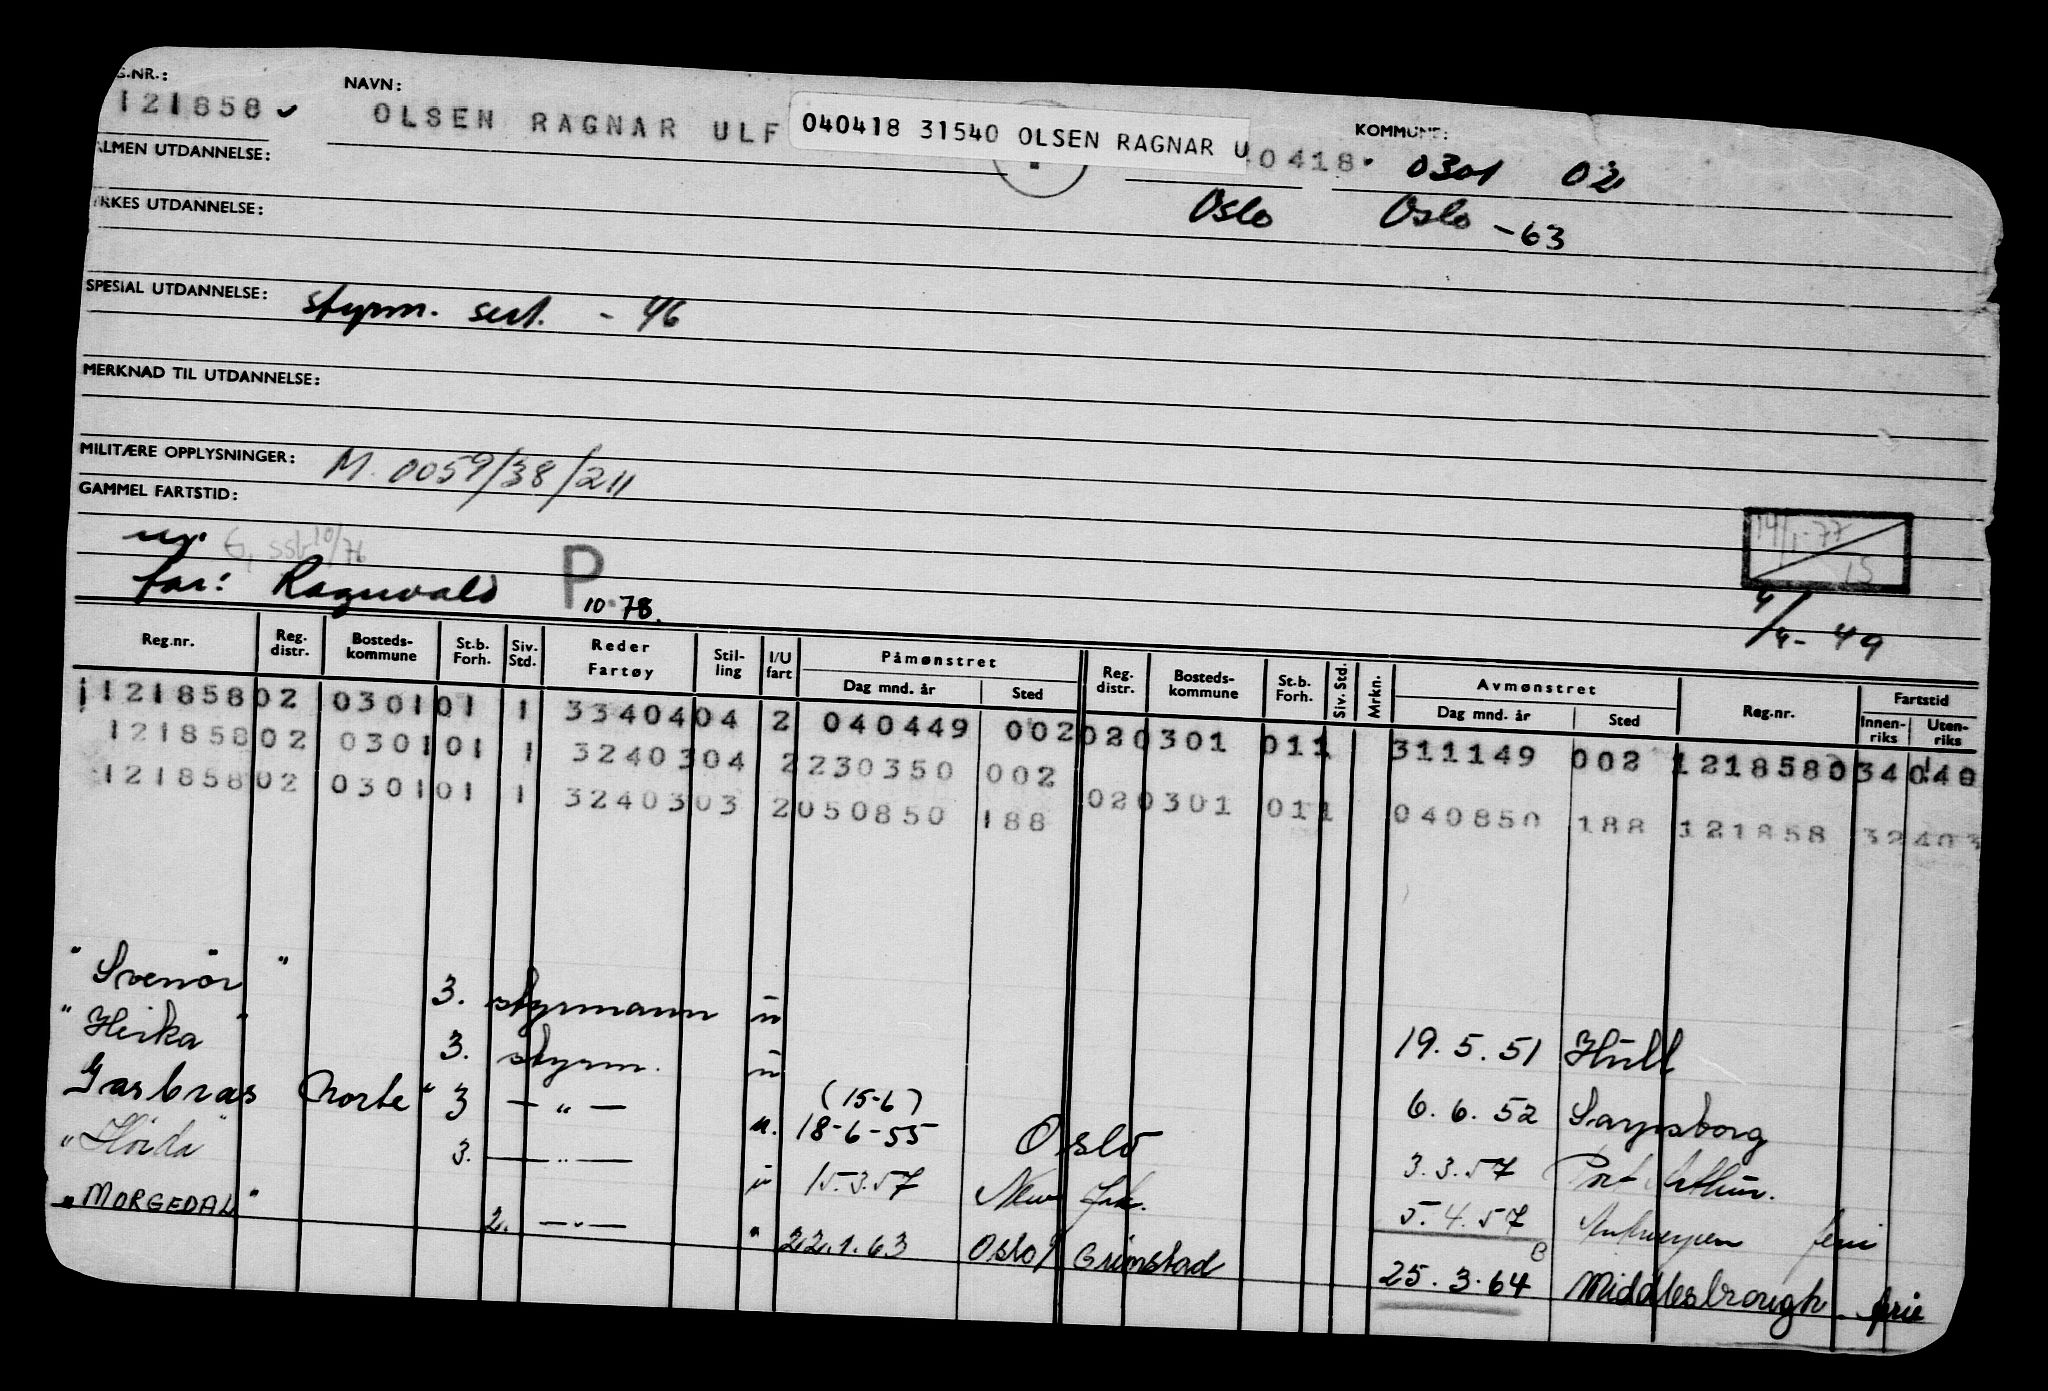 G.NR.: NAVN: KOMMUNE:
121858 OLSEN RAGNAR ULF 040418 31540 OLSEN RAGNAR U 0418 0301 02
ALMEN UTDANNELSE:
Oslo Oslo -63
YRKES UTDANNELSE:
SPESIAL UTDANNELSE: styrm. sert. - 46
MERKNAD TIL UTDANNELSE:
MILITÆRE OPPLYSNINGER: M. 0059/38/211
GAMMEL FARTSTID:
14/1-77
15
far: Ragnvald P 10.78.
4/4-49
Reg.nr. Reg. distr. Bosteds-kommune St.b. Forh. Siv. Std. Reder Fartøy Stil-ling I/U fart Påmønstret Reg. distr. Bosteds-kommune St.b. Forh. Siv. Std. Mrkn. Avmønstret Reg.nr. Fartstid
Dag mnd. år Sted Dag mnd. år Sted Innen-riks Uten-riks
121858 02 0301 01 1 33404 04 2 040449 002 02 0301 01 1 311149 002 121858 0 34040
121858 02 0301 01 1 32403 04 2 230350 002 02 0301 01 1 040850 188 121858 32403
121858 02 0301 01 1 32403 03 2 050850 188
"Svenör" 3. styrmann u 19.5.51 Hull
"Heika" 3. styrm. u 6.6.52 Sarpsborg
Gasbras Norte" 3 — " — u. (15-6) 18-6-55 Oslo 3.3.57 Port Arthur.
"Höida" 3. — " — u 15.3.57 New York. 5.4.57 Antwerpen ferie
"MORGEDAL" 2. — " — " 22.1.63 Oslo/ Grimstad 25.3.64 Middlesbrough ferie